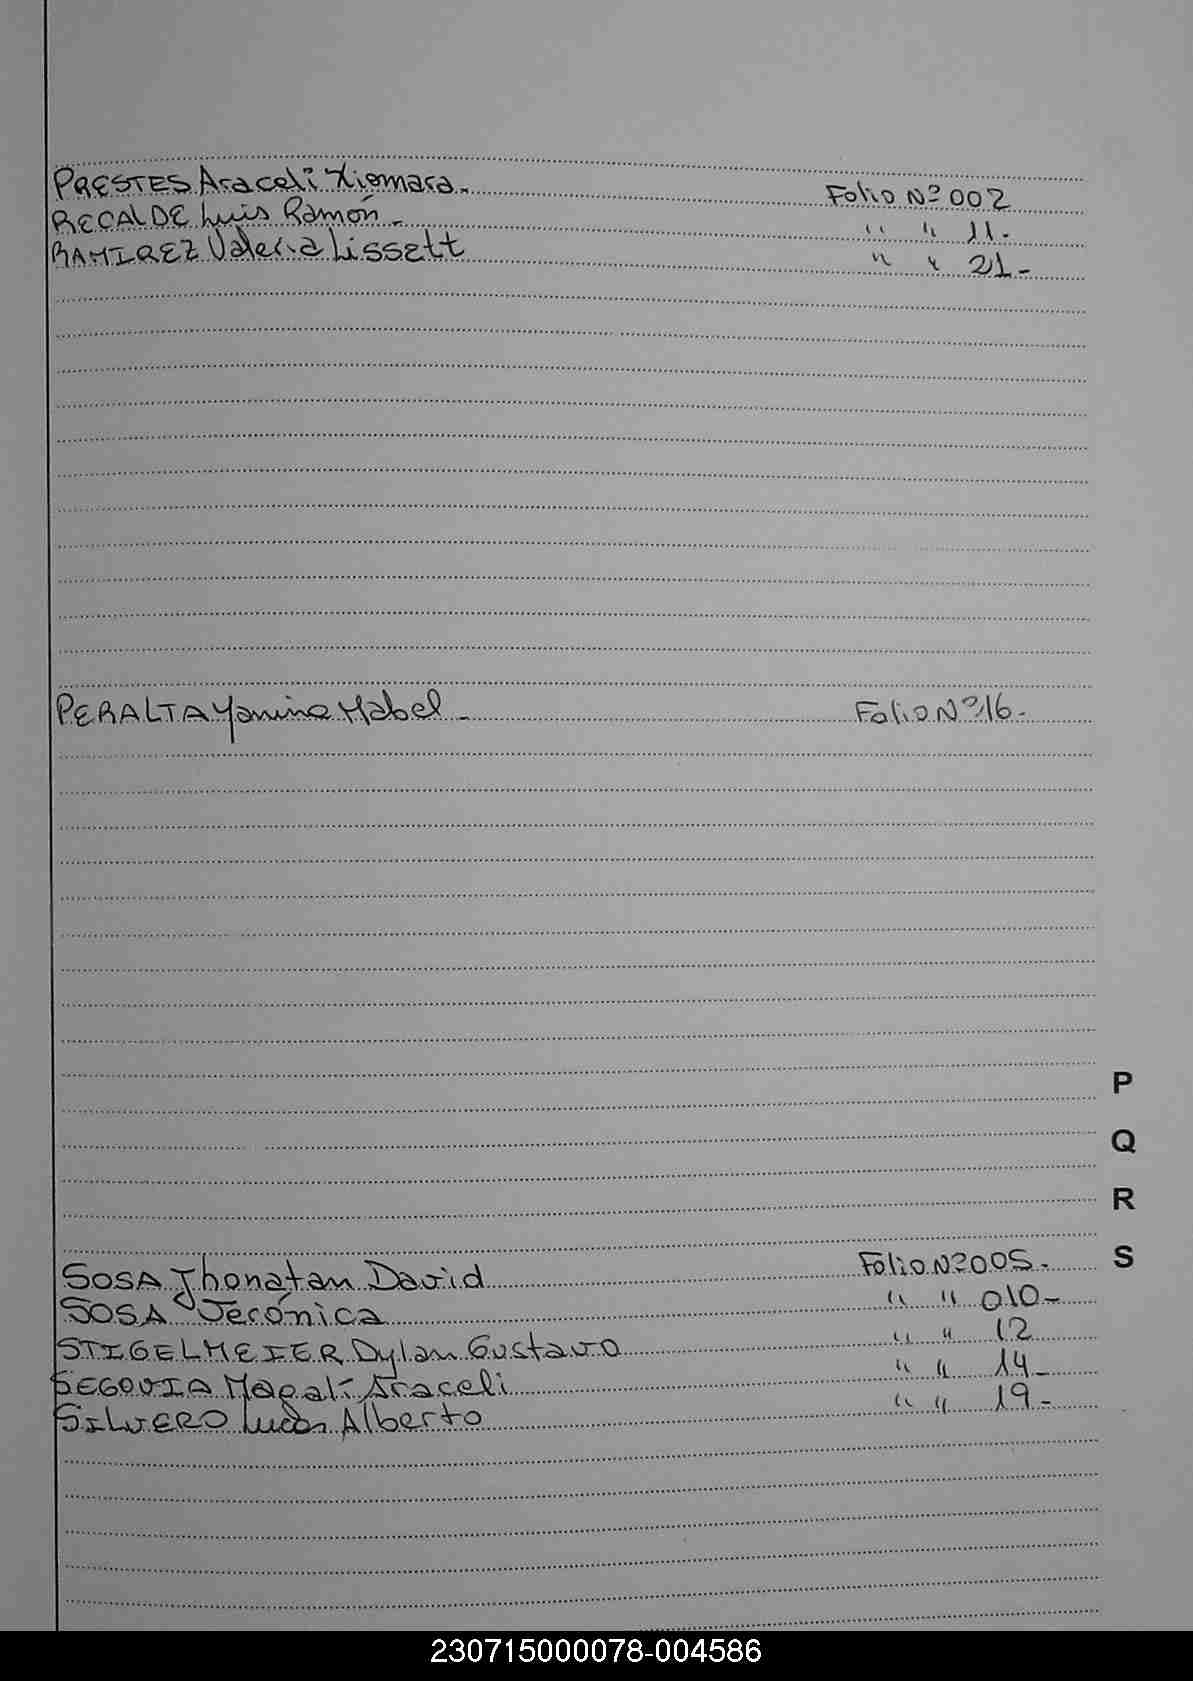 PRESTES Araceli Xiomara. Folio Nº 002
RECALDE Luis Ramón. - " " 11.-
RAMIREZ Valeria Lissett " " 21-
PERALTA Yanina Mabel - Folio Nº 16.-
SOSA Jhonatan David Folio Nº 005.-
SOSA Verónica " " 010-
STIGELMEIER Dylan Gustavo " " 12
SEGOVIA Magalí Araceli " " 14-
SILVERO Lucas Alberto " " 19-
P
Q
R
S
230715000078-004586